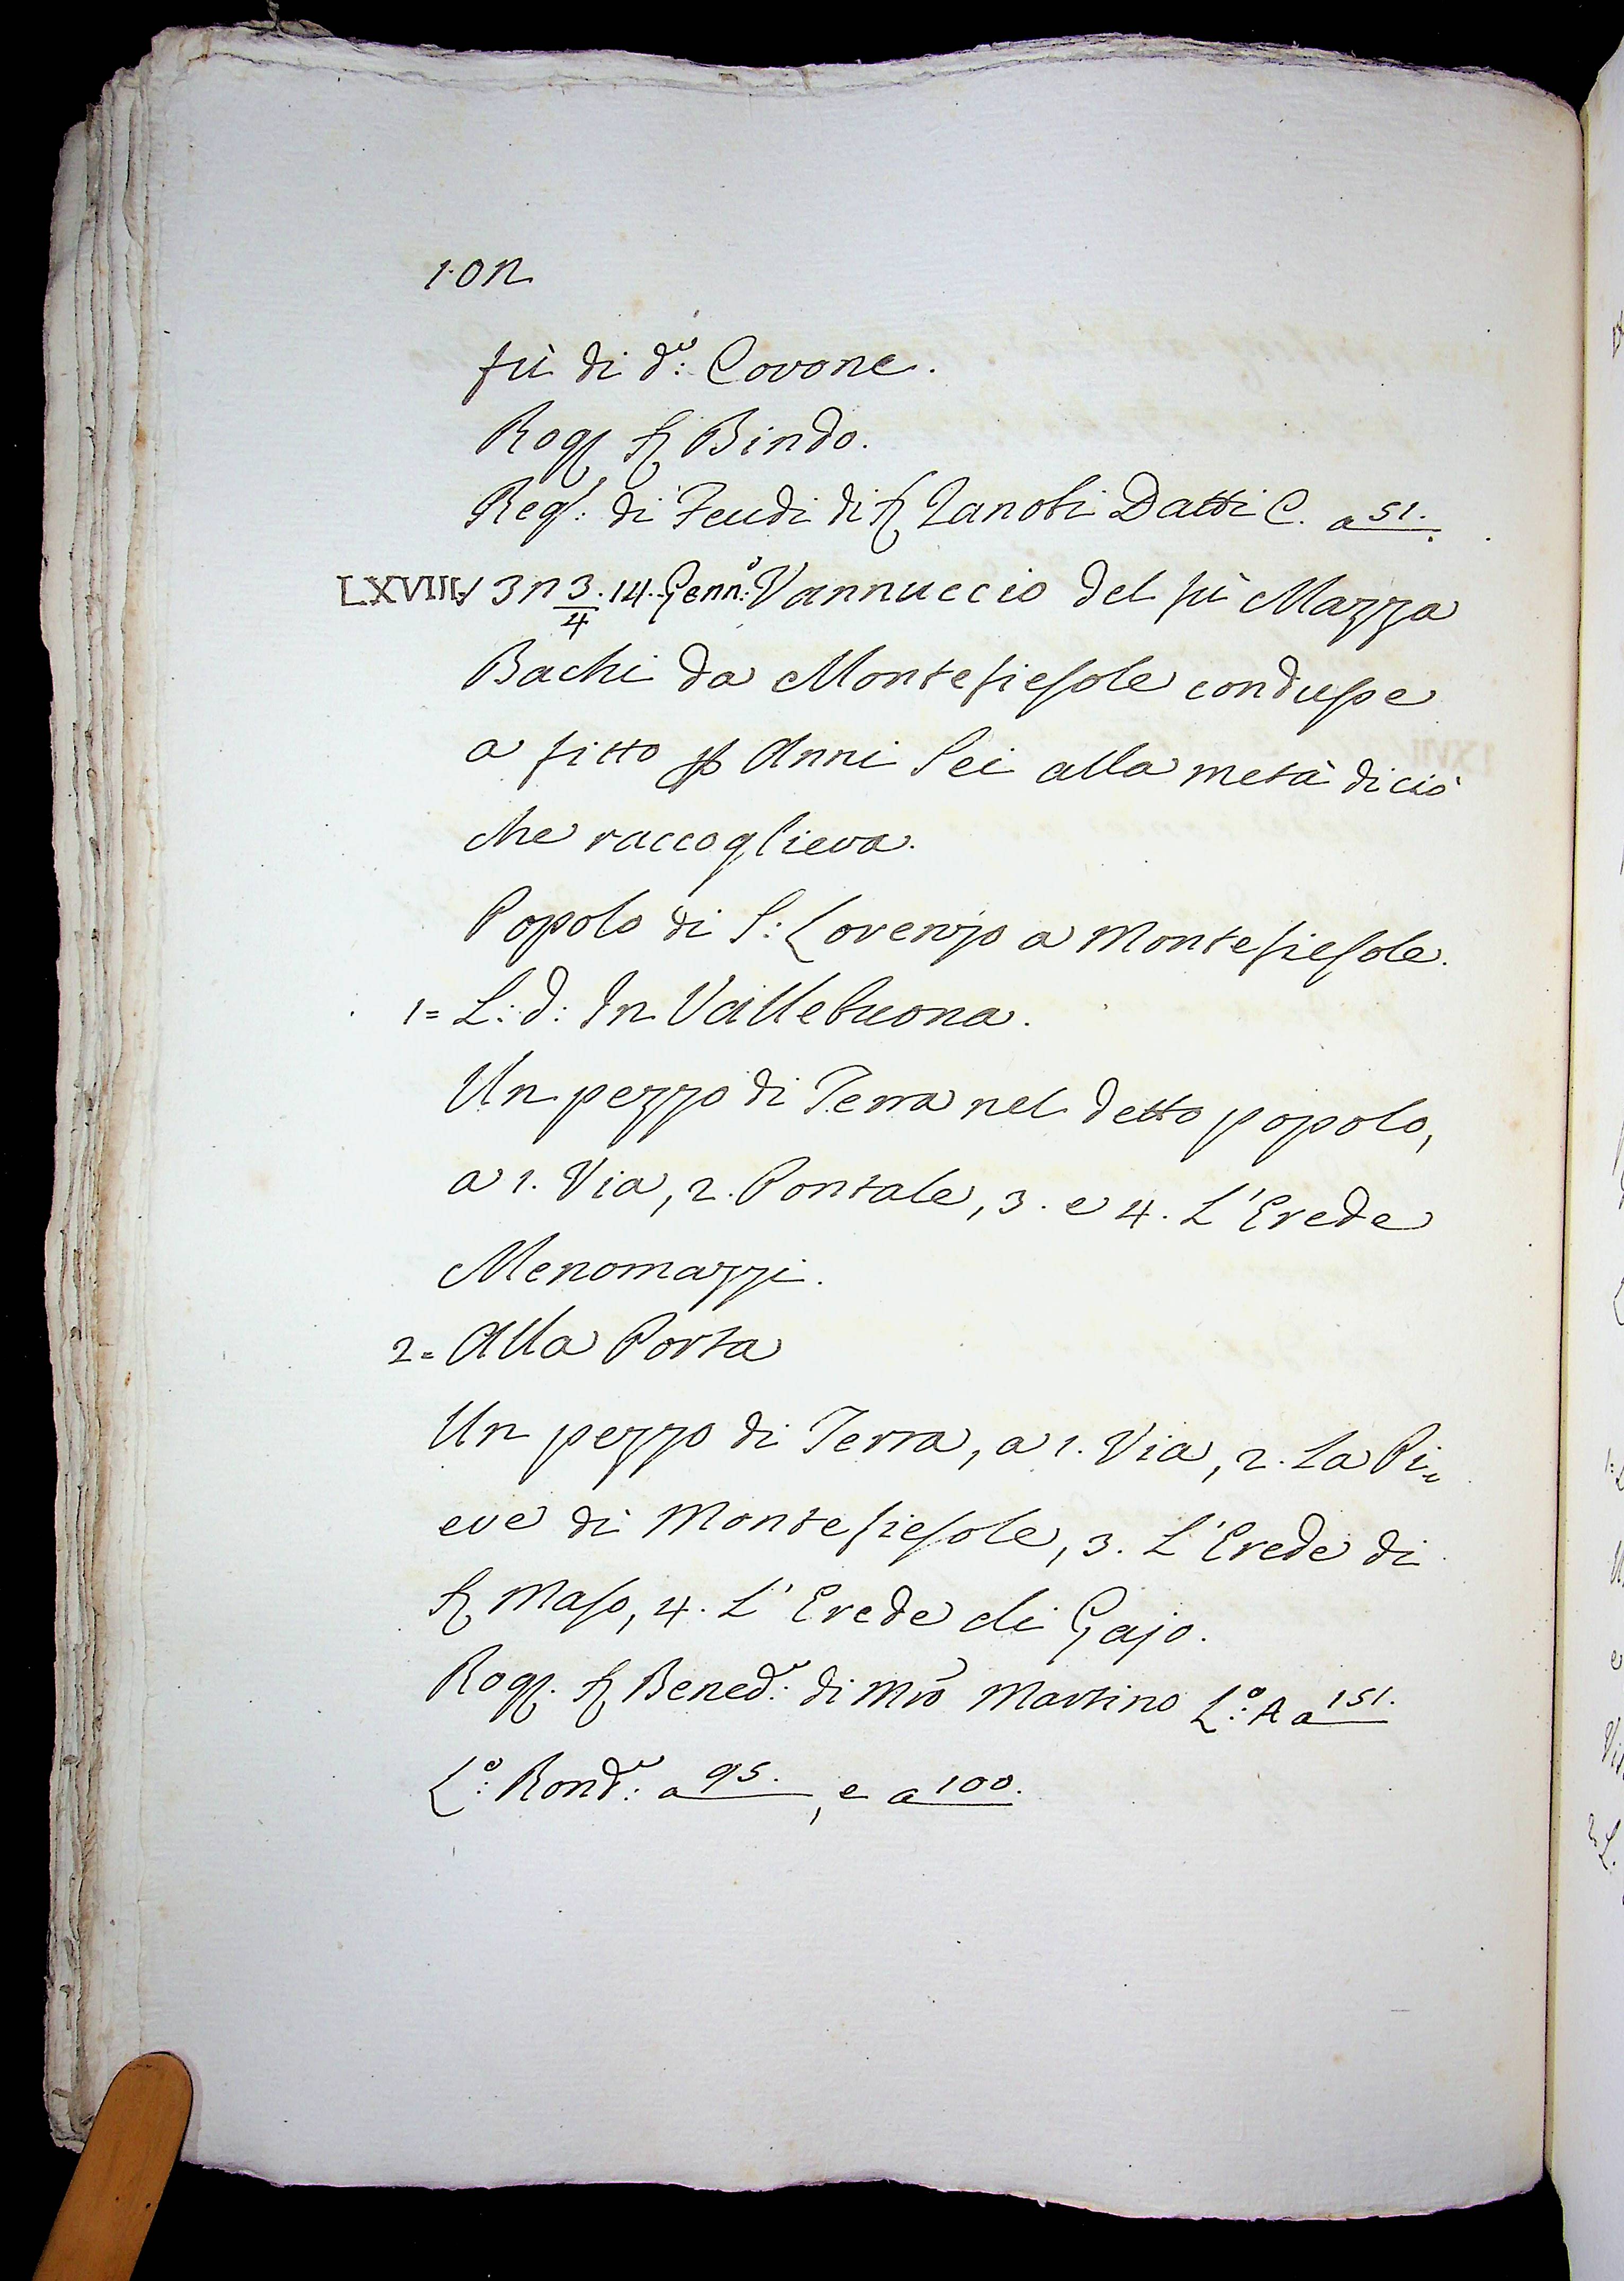 1·0n
fù di d.º: Covone.
Rog. Sr Bindo.
Reg.: di Feudi di Sr Zanobi Datti C. a 51.
LXVIIII 3n 3/4. 14. Genn.º: Vannuccio del fù Mazza
Bachi da Montefiesole condusse
a fitto p Anni Sei alla metà di ciò
che raccoglieva.
Popolo di S: Lorenzo a Montefiesole.
1= L: d: In Vallebuona.
Un pezzo di Terra nel detto popolo,
a 1. Via, 2. Pontale, 3. e 4. L'Erede
Menomazzi.
2= Alla Porta
Un pezzo di Terra, a 1. Via, 2. La Pi=
eve di Montefiesole, 3. L'Erede di
Sr Maso, 4. L'Erede di Gajo.
Rog. Sr Bened.º: di Mró Martino L.º: A a 151.
L.º: Rond.º: a 95., e a 100.